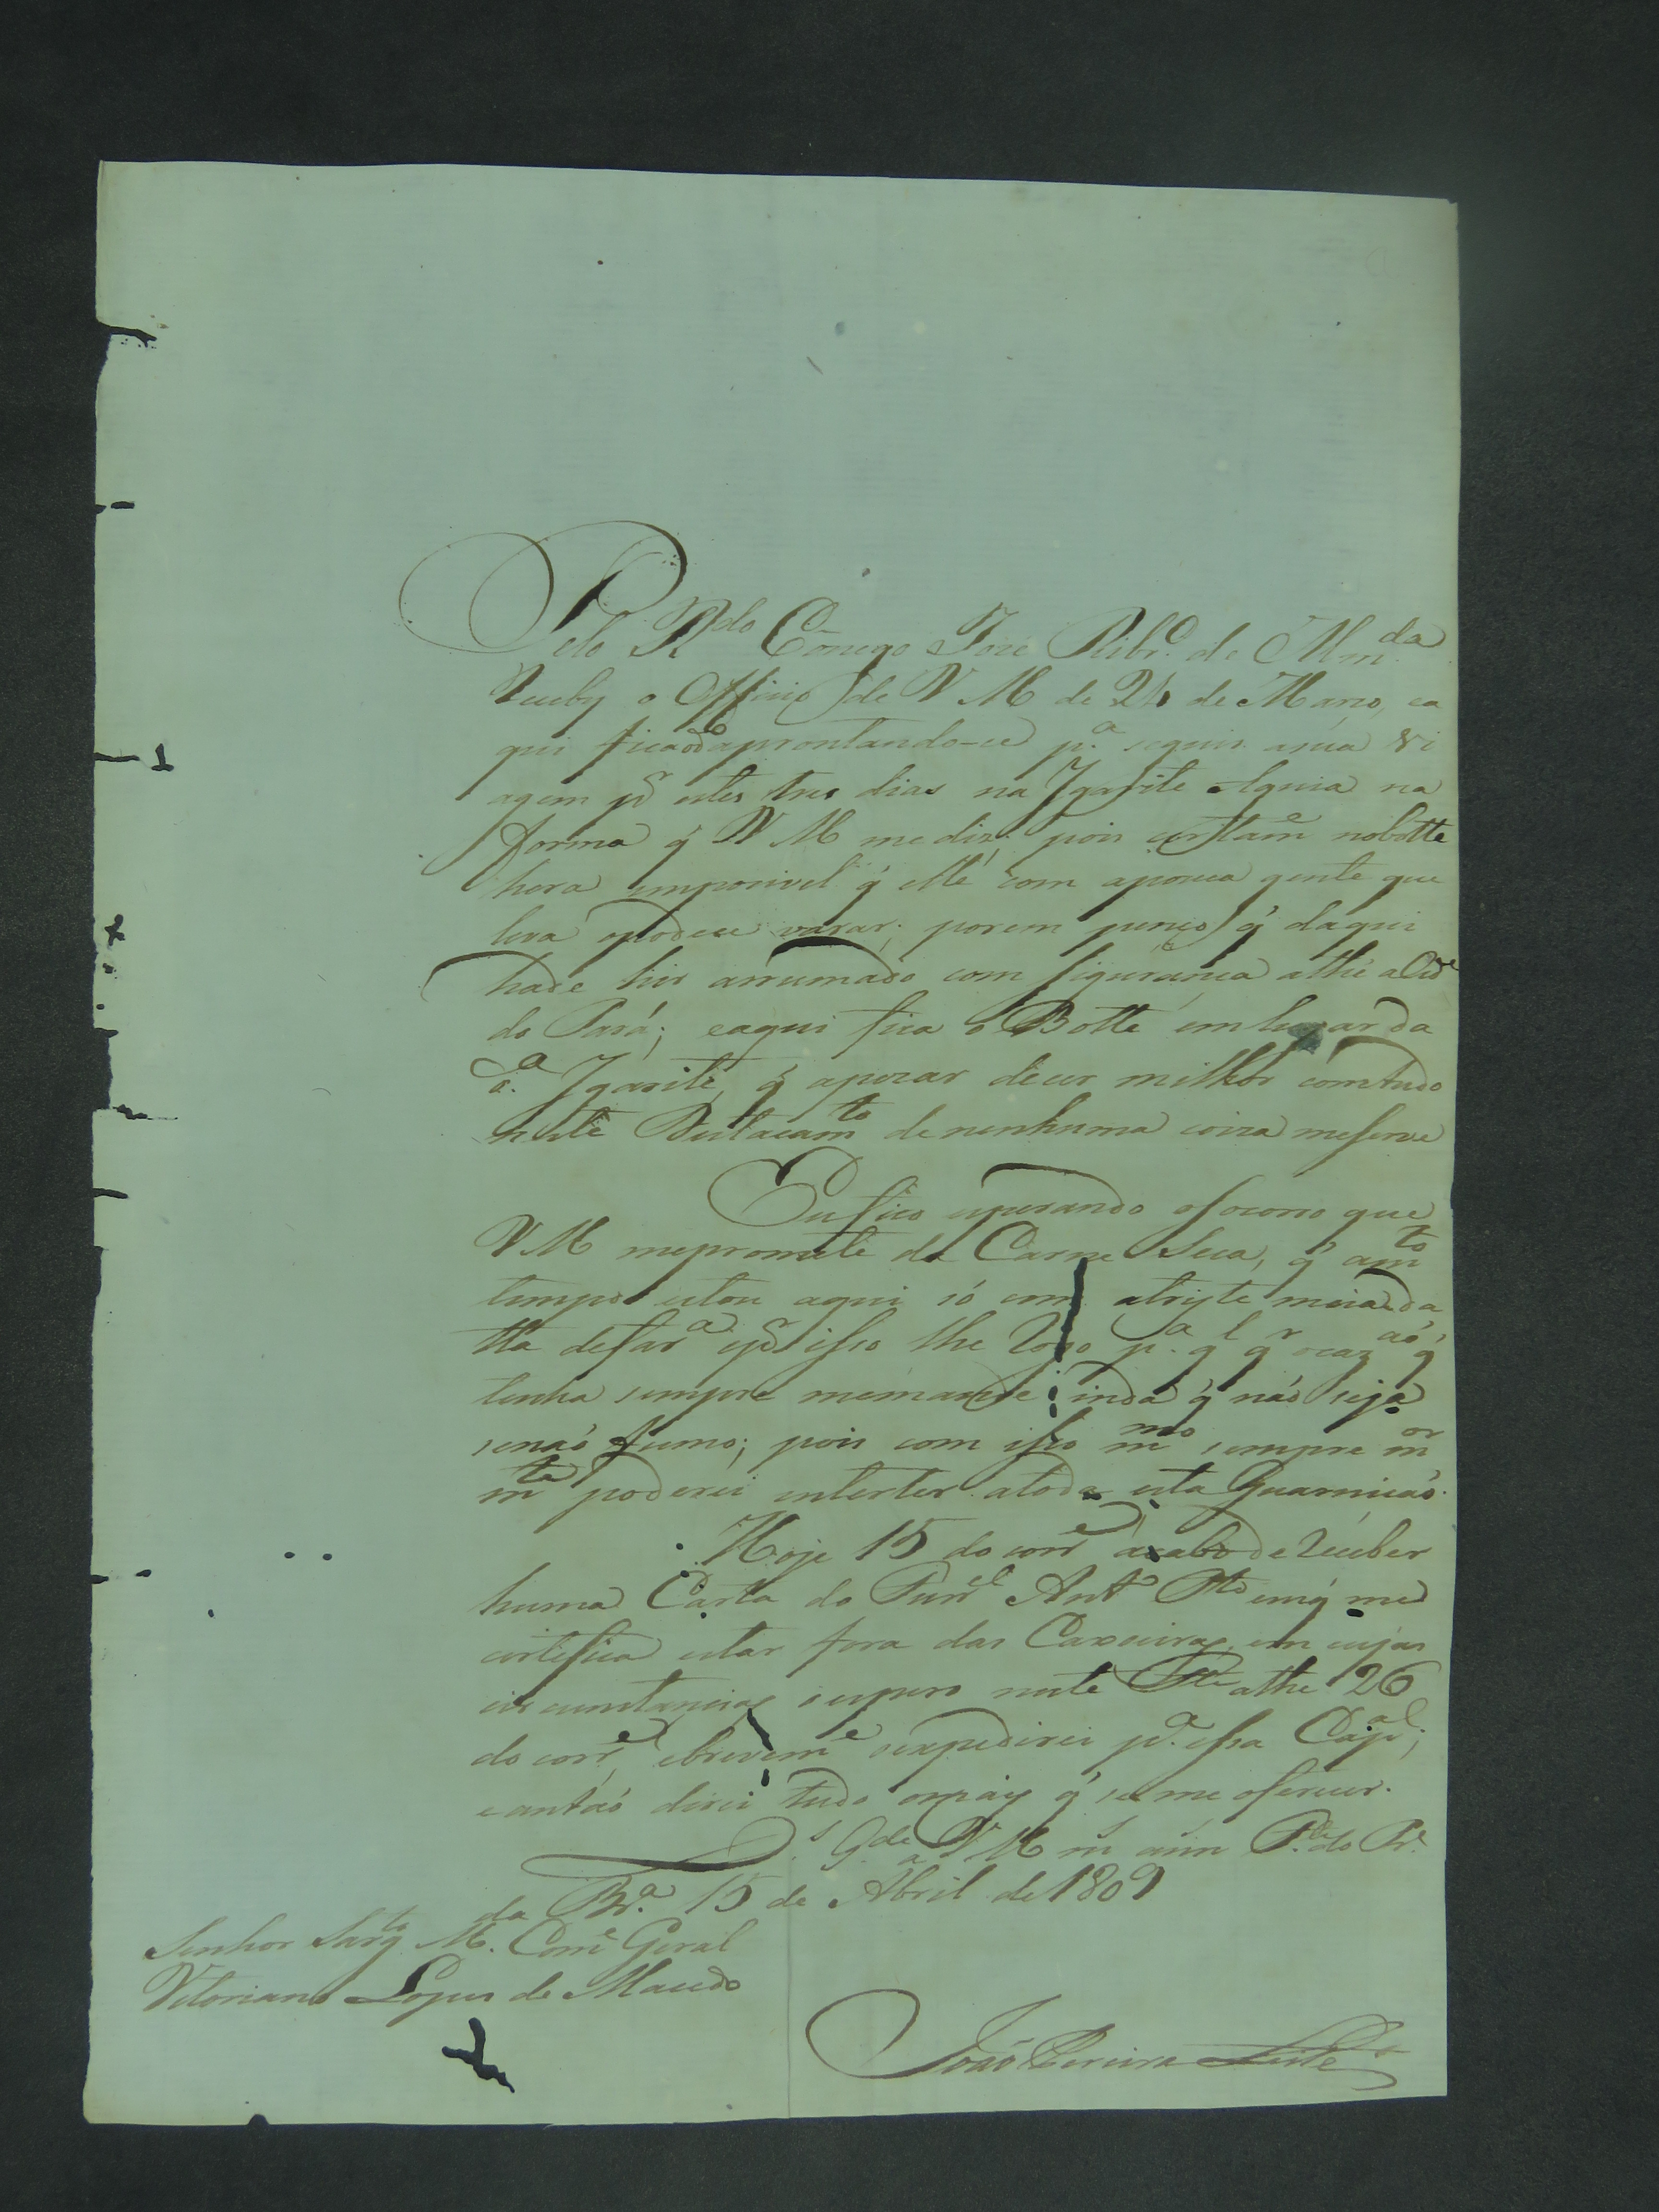 Pelo R.do Cônego Joze Ribr.o de Alm.da
Reciby o Officio de V M de 24 de Março, ea
qui fica od.o aprontando-ce p.a seguir asua vi
agem p.r estes tres dias na Igarite Aguia na
forma q' V M mediz; pois certam.e nobotte
hera imposivel q' elle com apouca gente que
leva opodece varar; porem penço q' daqui
hade hir arrumado com sigurança athé a Cid.e
do Pará; eaqui fica o Botte em lugar da
d.a Igarité, q' apezar decer milhor comtudo
neste Destacam.to de nenhuma coiza meserve
Eu fico esperando osocorro que
V M mepromete da Carne Seca, q' am.to
tempo estou aqui só com atriste meia da
tta defar.a ep.r isso lhe Rogo p.a q' q.l q.r ocaz.ão q'
tenha sempre memande; inda q' não seja
senão fumo; pois com isso m.mo sempre m.or
m.te poderei enterter atoda esta Guarnição.
Hoje 15 do corr.e acabo de Receber
huma Carta do Furr.el Ant.o P.to emq' me
certifica estar fora das Caxoeiras, em cujas
circumstancias oespero neste P.to athe 26
do corr.e, ebrevem.e oexpedirei p.a essa Cap.al;
eantão direi tudo omais q' se me oferecer.
D.s G.de a V M m.s ann.s P.to do R.o
da Br.a 15 de Abril de 1809
Senhor Sarg.to M. Com.e Geral
Vitoriano Lopes de Macedo
João Pereira Leite